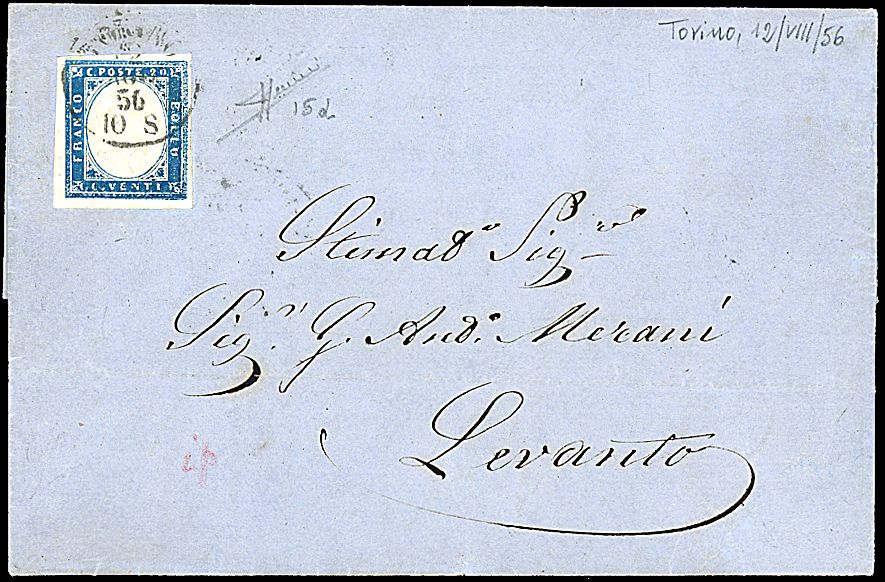 Torino, 12/VIII/56
C. POSTE. 20
FRANCO
BOLLO
C. VENTI
56
10 S
15d
Stimad.o Sig.re
Sig.r G. And.a Merani
Levanto